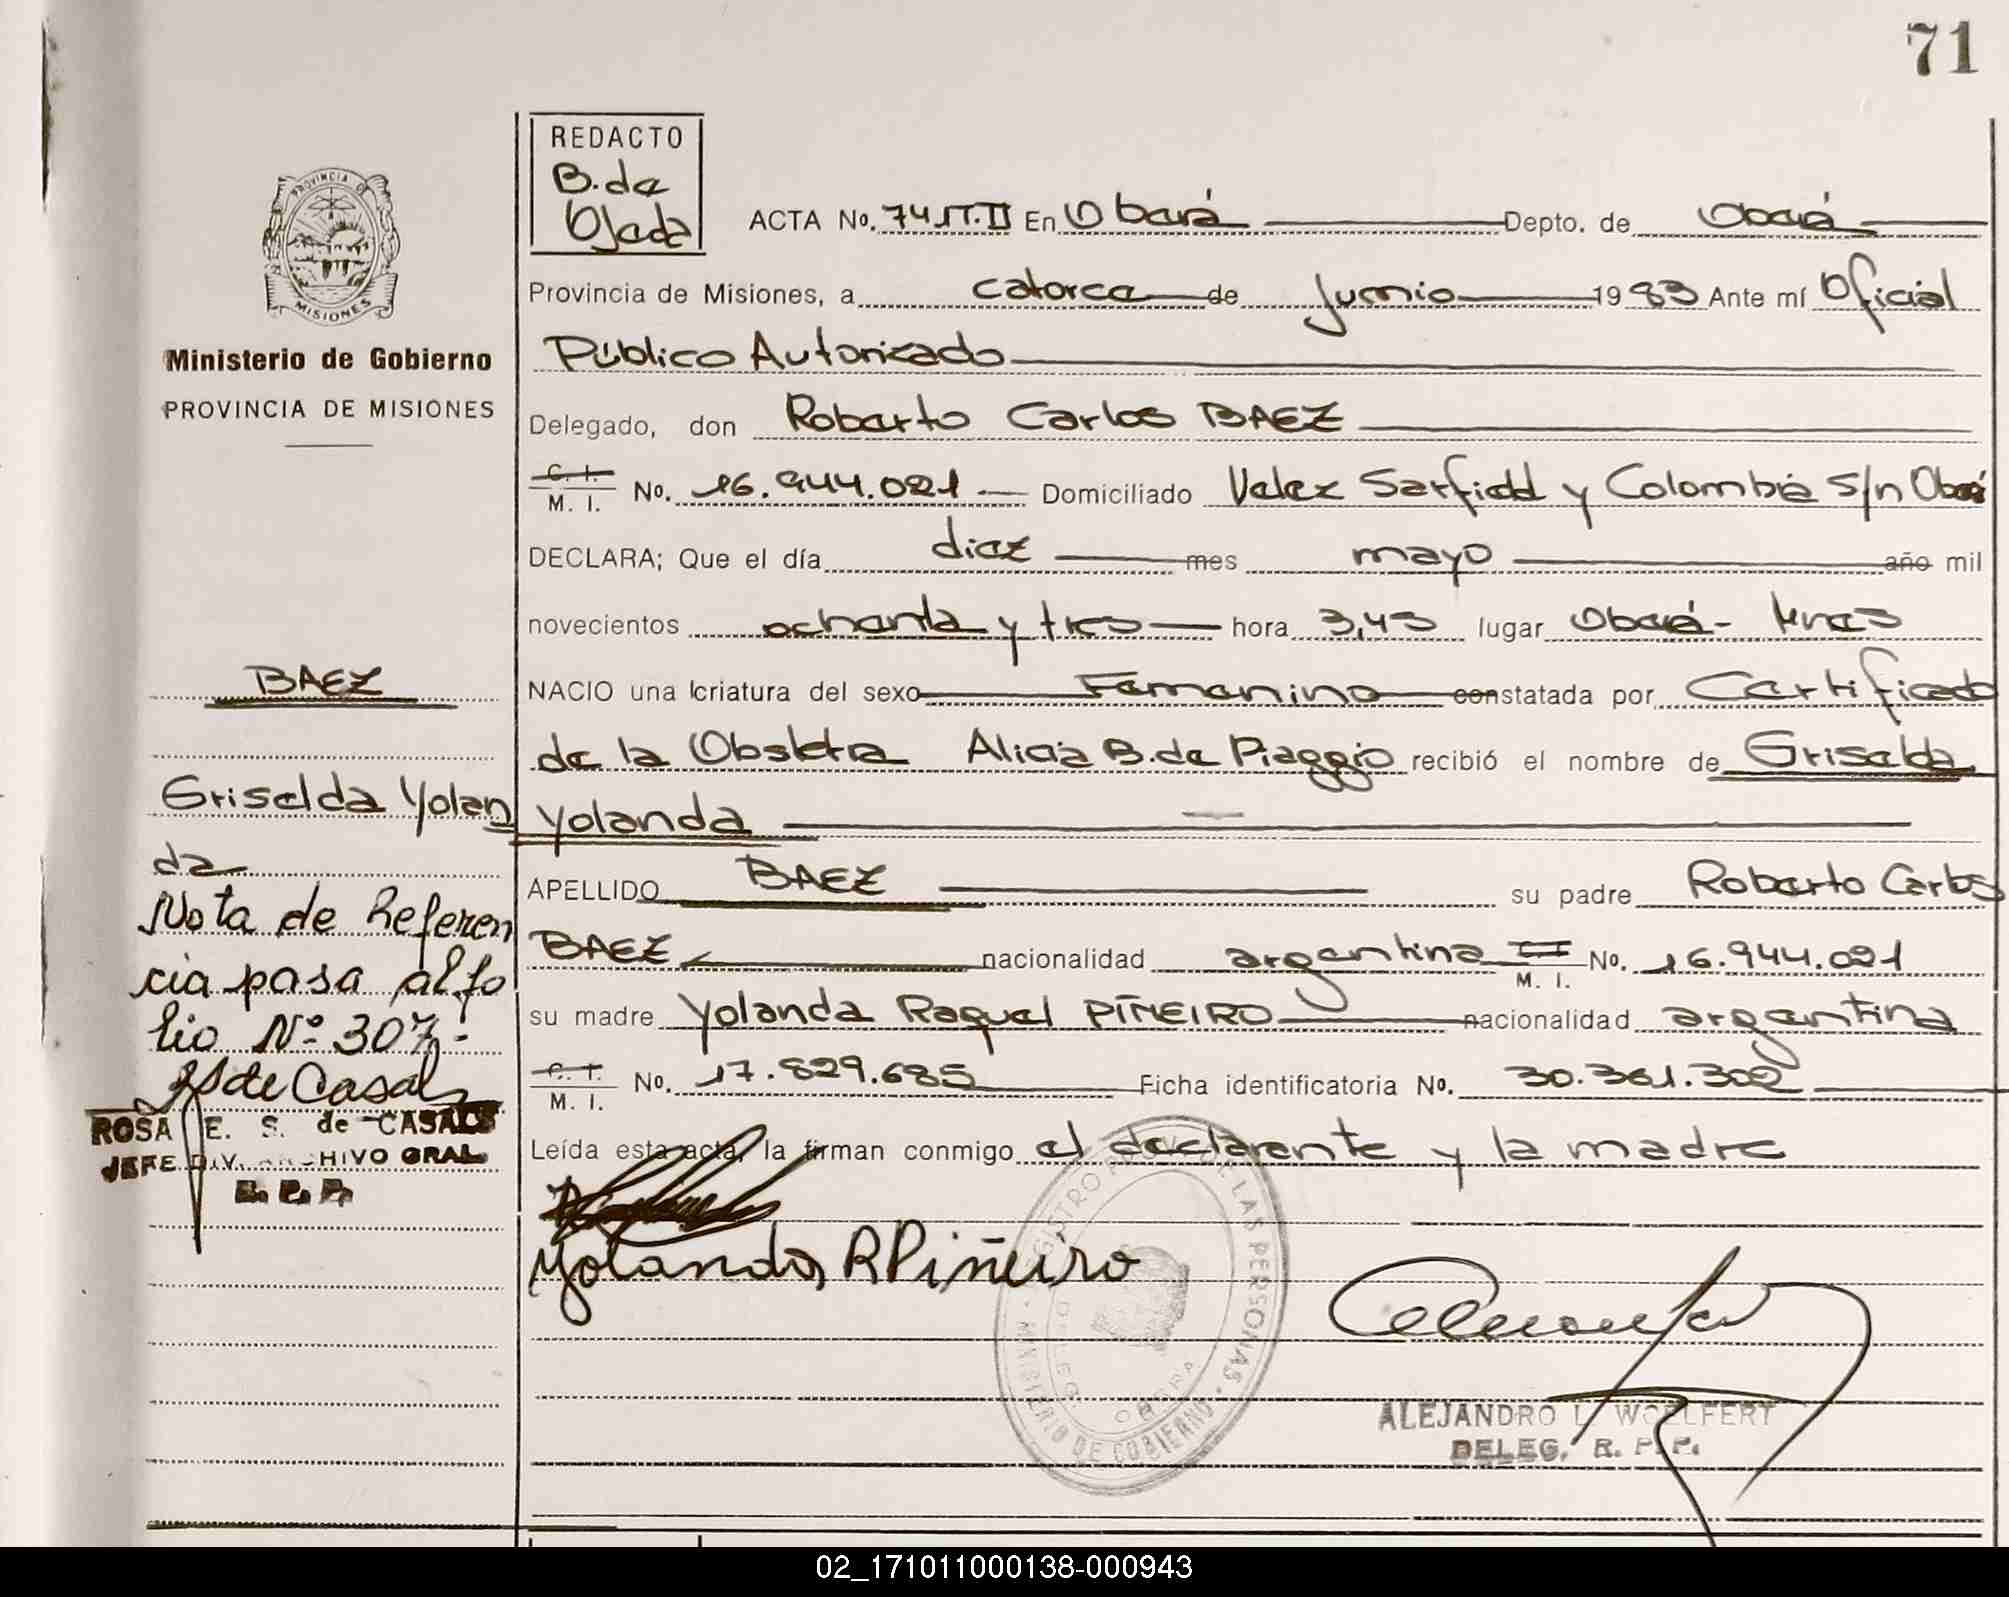 71
REDACTO
B. de
Ojeda
ACTA No. 745 T.II En Oberá Depto. de Oberá
PROVINCIA DE
MISIONES
Provincia de Misiones, a catorce de junio 1983 Ante mí Oficial
Ministerio de Gobierno
Público Autorizado
PROVINCIA DE MISIONES
Delegado, don Roberto Carlos BAEZ
C. I.
M. I. No. 16.944.021 Domiciliado Velez Sarfield y Colombia S/n Oberá
DECLARA; Que el día diez mes mayo año mil
novecientos ochenta y tres hora 3,45 lugar Oberá - Mnes
BAEZ
NACIO una criatura del sexo Femenino constatada por Certificado
de la Obstetra Alicia B. de Piaggio recibió el nombre de Griselda
Griselda Yolan
Yolanda
da
APELLIDO BAEZ su padre Roberto Carlos
Nota de Referen
BAEZ nacionalidad argentina C I
M. I. No. 16.944.021
cia pasa al fo
su madre Yolanda Raquel PIÑEIRO nacionalidad argentina
lio Nº 307.-
C. I.
M. I. No. 17.829.685 Ficha identificatoria No. 30.361.302
RS de Casals
ROSA E. S. de CASALS
JEFE DIV. ARCHIVO GRAL
R. P. P.
Leída esta acta, la firman conmigo el declarante y la madre
Yolanda R Piñeiro
REGISTRO PROV. DE LAS PERSONAS
MINISTERIO DE GOBIERNO
DELEG.
OBERA
ALEJANDRO L. WOELFERT
DELEG. R. P. P.
02_171011000138-000943